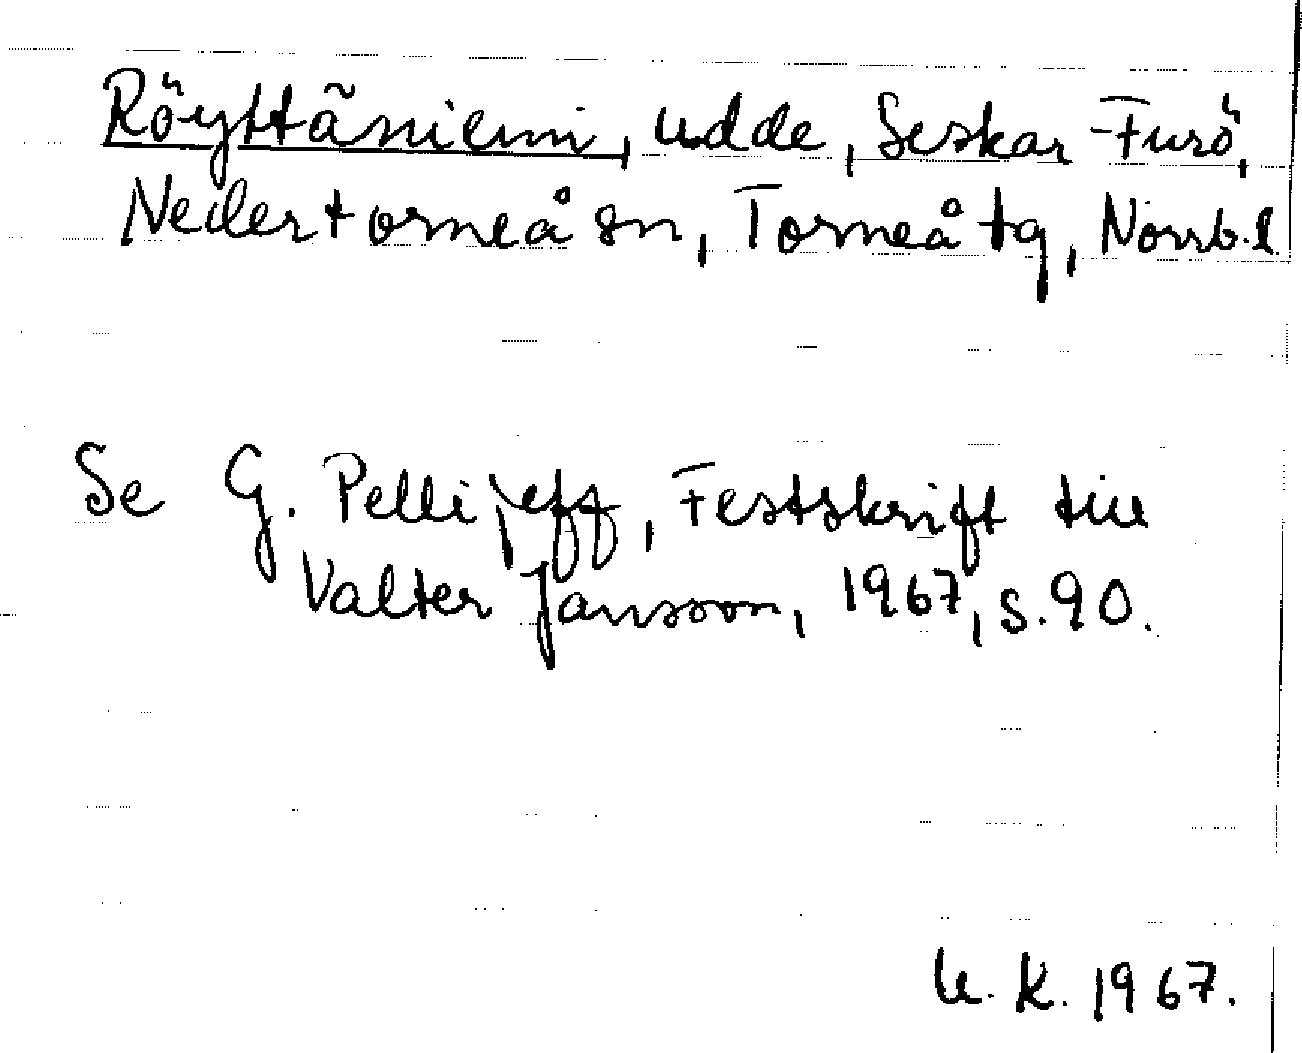 Röyttäniemi, udde, Seskar-Furö,
Nedertorneå sn, Torneå tg, Norrb.l.
Se G. Pellijeff, Festskrift till
Valter Jansson, 1967, s. 90.
U. K. 1967.